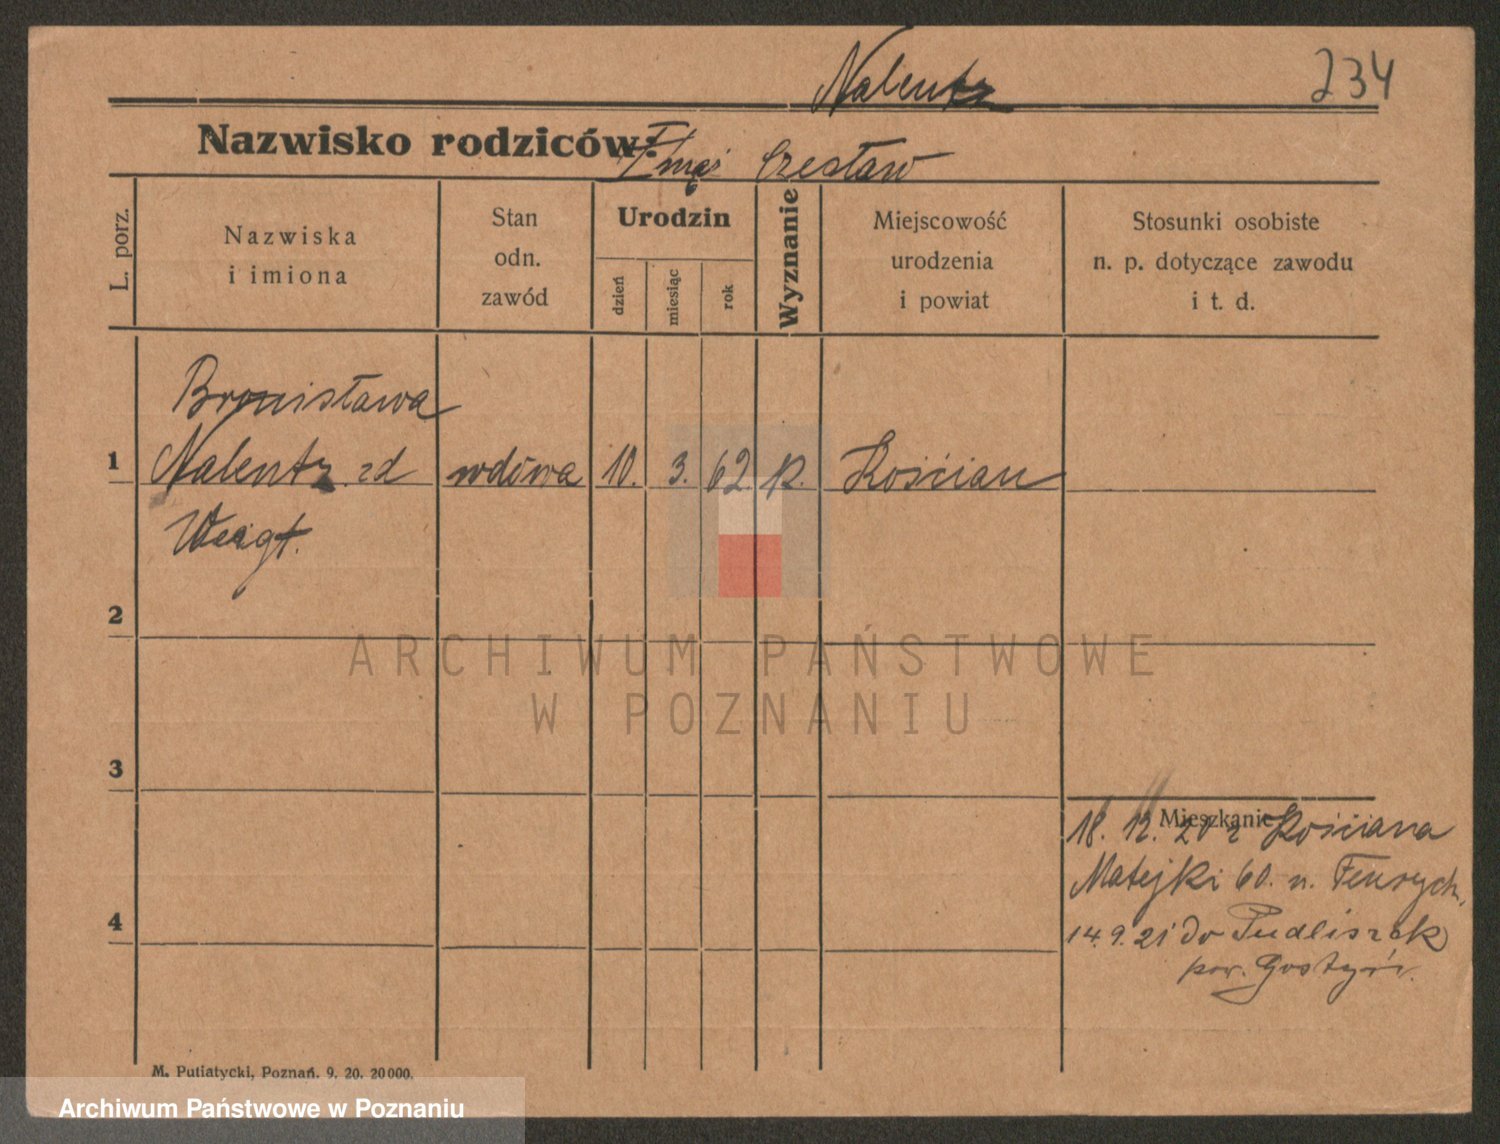 Nalentz
234
Nazwisko rodziców:
mąż Czesław
L. porz.
Nazwiska
i imiona
Stan
odn.
zawód
Urodzin
dzień
miesiąc
rok
Wyznanie
Miejscowość
urodzenia
i powiat
Stosunki osobiste
n. p. dotyczące zawodu
i t. d.
Bronisława
1 Nalentz zd wdowa 10. 3. 62 k. Kościan
Weigt.
2
3
4
Mieszkanie
18. 12. 20 z Kościana
Matejki 60. n.
14. 9. 21 do Pudliszek
pow. Gostyń.
M. Putiatycki, Poznań. 9. 20. 20000.
ARCHIWUM PAŃSTWOWE
W POZNANIU
Archiwum Państwowe w Poznaniu